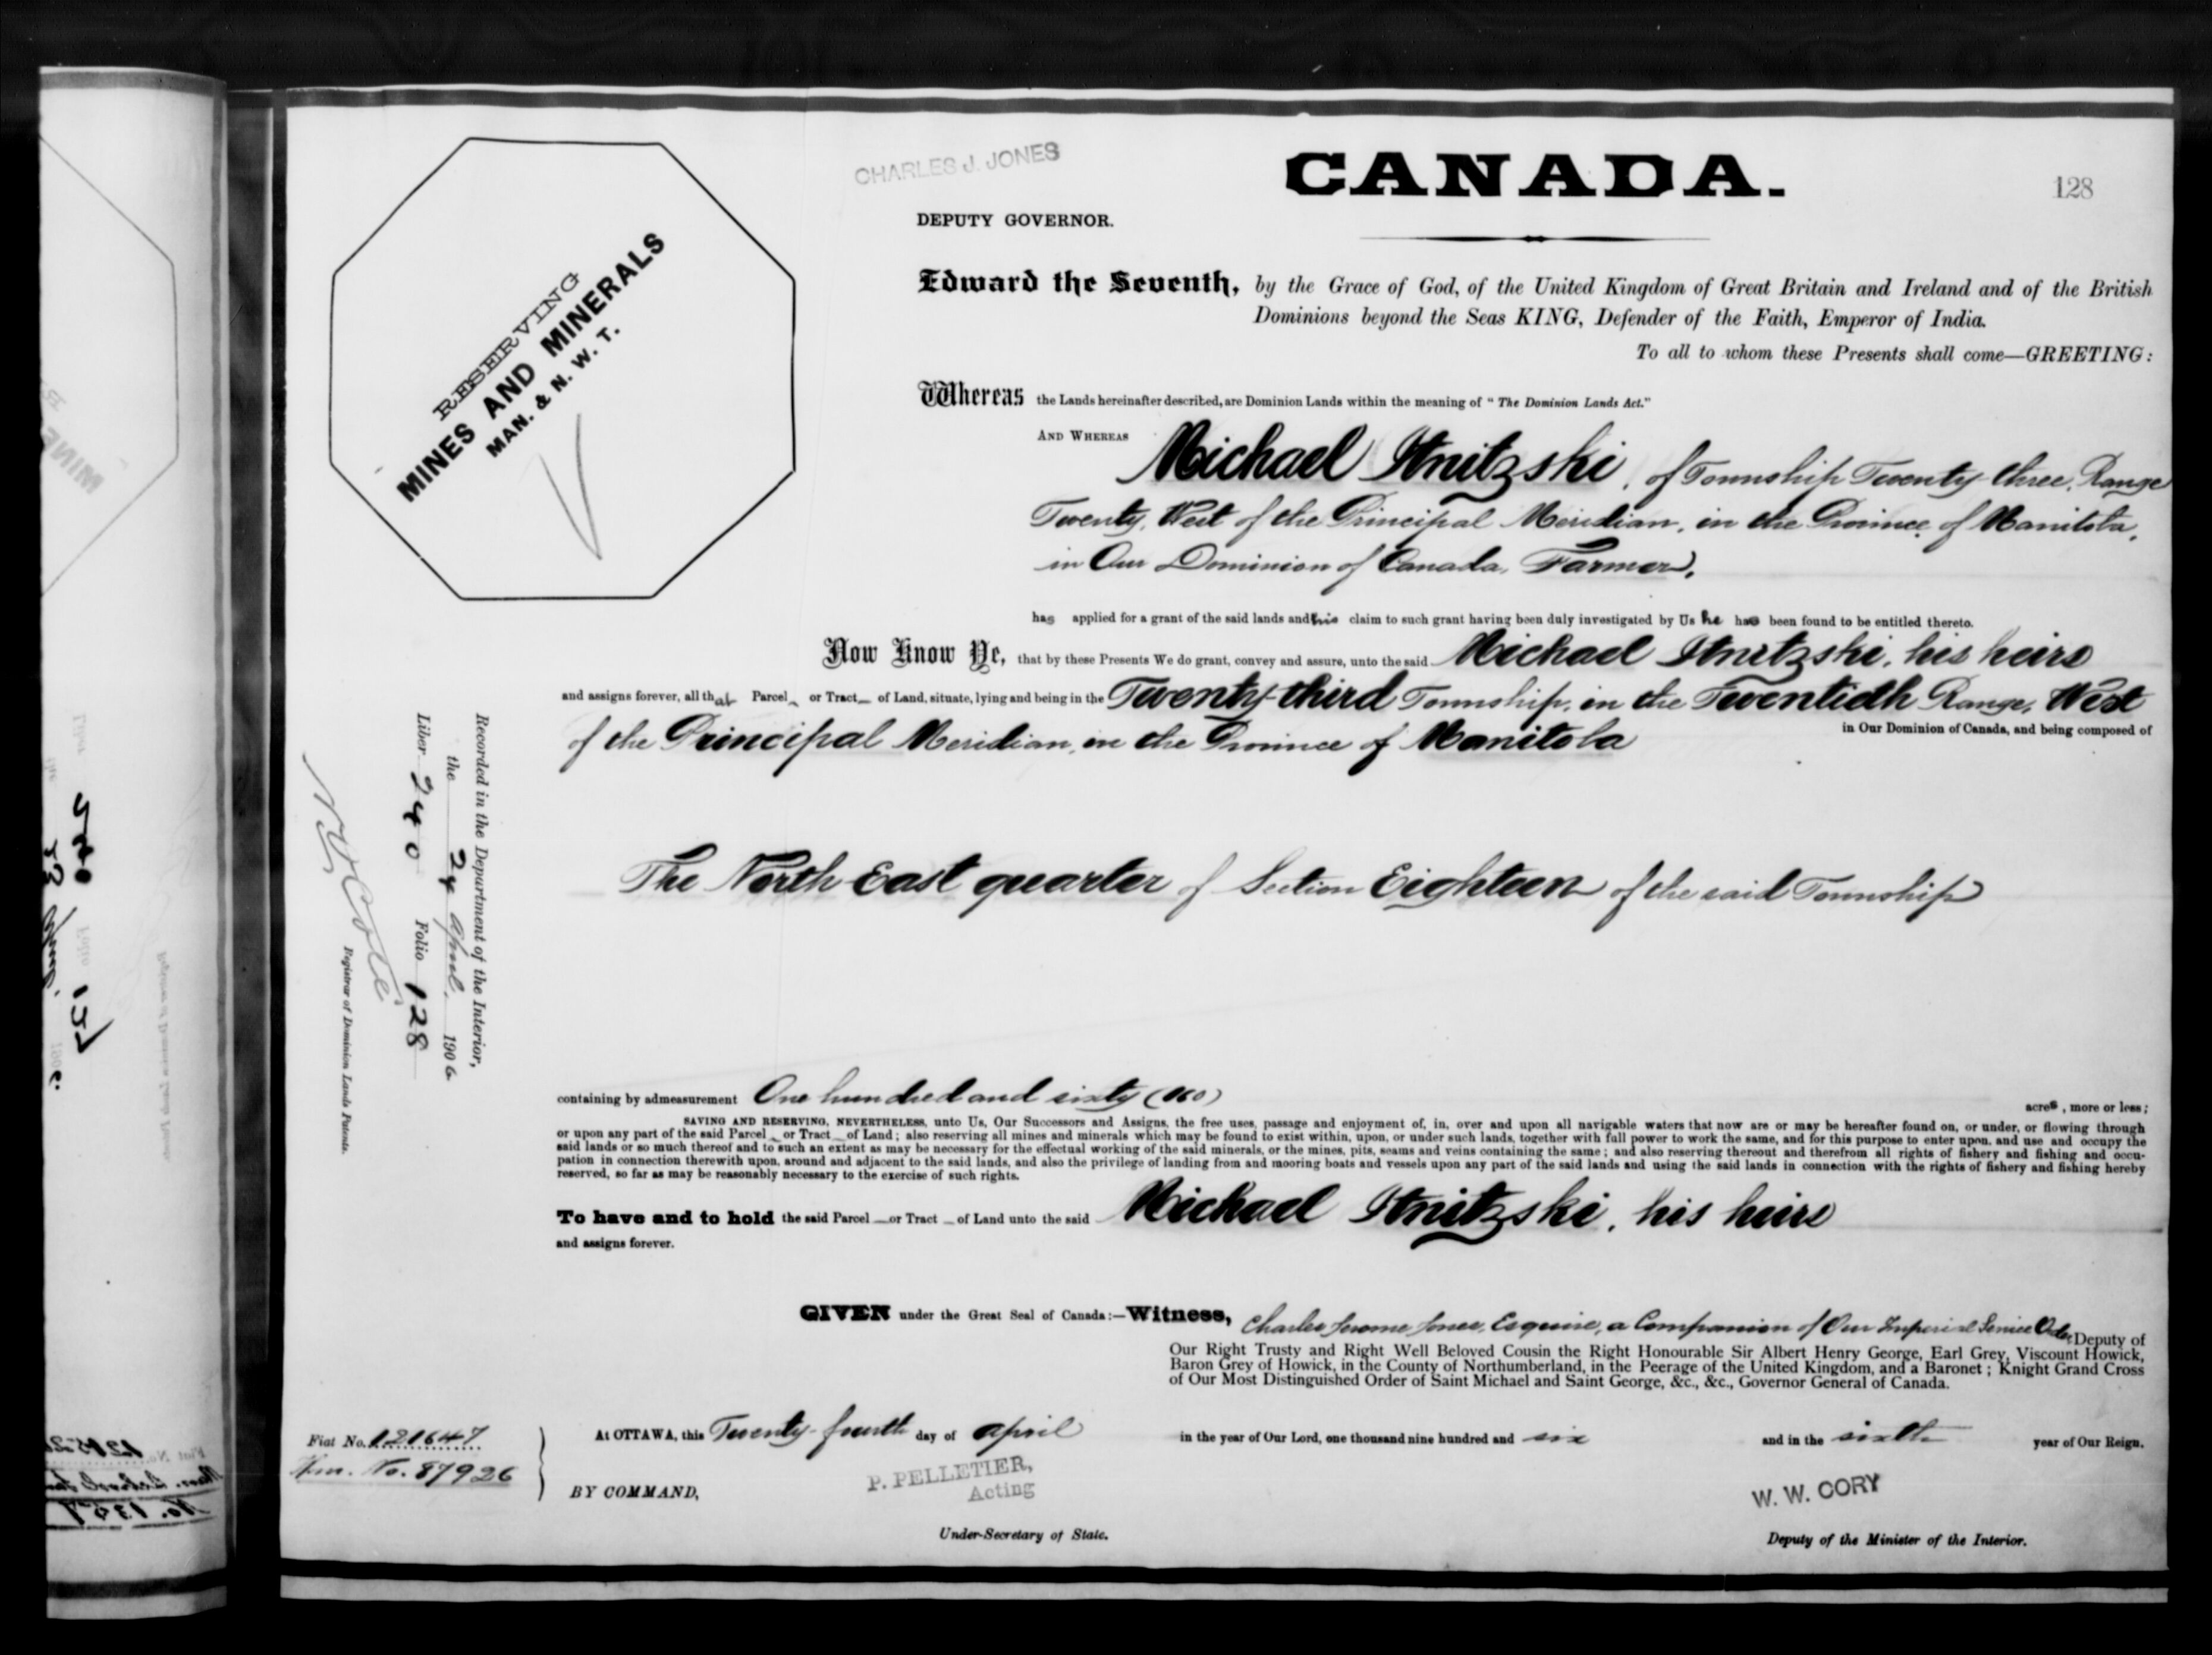 CHARLES J. JONES
CANADA.
128
DEPUTY GOVERNOR.
RESERVING
MINES AND MINERALS
MAN. & N. W. T.
Edward the Seventh, by the Grace of God, of the United Kingdom of Great Britain and Ireland and of the British
Dominions beyond the Seas KING, Defender of the Faith, Emperor of India.
To all to whom these Presents shall come—GREETING:
Whereas the Lands hereinafter described, are Dominion Lands within the meaning of "The Dominion Lands Act."
AND WHEREAS Michael Hnitzski, of Township Twenty-three, Range
Twenty, West of the Principal Meridian, in the Province of Manitoba,
in Our Dominion of Canada, Farmer,
has applied for a grant of the said lands and his claim to such grant having been duly investigated by Us he has been found to be entitled thereto.
Now Know Ye, that by these Presents We do grant, convey and assure, unto the said Michael Hnitzski, his heirs
and assigns forever, all that Parcel or Tract of Land, situate, lying and being in the Twenty-third Township, in the Twentieth Range, West
of the Principal Meridian, in the Province of Manitoba in Our Dominion of Canada, and being composed of
The North East quarter of Section Eighteen of the said Township
Recorded in the Department of the Interior,
the 24 April, 1906
Liber 240 Folio 128
Registrar of Dominion Lands Patents.
containing by admeasurement One hundred and sixty (160) acres, more or less;
SAVING AND RESERVING, NEVERTHELESS, unto Us, Our Successors and Assigns, the free uses, passage and enjoyment of, in, over and upon all navigable waters that now are or may be hereafter found on, or under, or flowing through
or upon any part of the said Parcel or Tract of Land; also reserving all mines and minerals which may be found to exist within, upon, or under such lands, together with full power to work the same, and for this purpose to enter upon, and use and occupy the
said lands or so much thereof and to such an extent as may be necessary for the effectual working of the said minerals, or the mines, pits, seams and veins containing the same; and also reserving thereout and therefrom all rights of fishery and fishing and occu-
pation in connection therewith upon, around and adjacent to the said lands, and also the privilege of landing from and mooring boats and vessels upon any part of the said lands and using the said lands in connection with the rights of fishery and fishing hereby
reserved, so far as may be reasonably necessary to the exercise of such rights.
To have and to hold the said Parcel or Tract of Land unto the said Michael Hnitzski, his heirs
and assigns forever.
GIVEN under the Great Seal of Canada:—Witness, Charles Jerome Jones, Esquire, a Companion of Our Imperial Service Order, Deputy of
Our Right Trusty and Right Well Beloved Cousin the Right Honourable Sir Albert Henry George, Earl Grey, Viscount Howick,
Baron Grey of Howick, in the County of Northumberland, in the Peerage of the United Kingdom, and a Baronet; Knight Grand Cross
of Our Most Distinguished Order of Saint Michael and Saint George, &c., &c., Governor General of Canada.
At OTTAWA, this Twenty-fourth day of April in the year of Our Lord, one thousand nine hundred and six and in the sixth year of Our Reign.
Fiat No. 121647
Hm. No. 87926
BY COMMAND,
P. PELLETIER,
Acting
Under-Secretary of State.
W. W. CORY
Deputy of the Minister of the Interior.